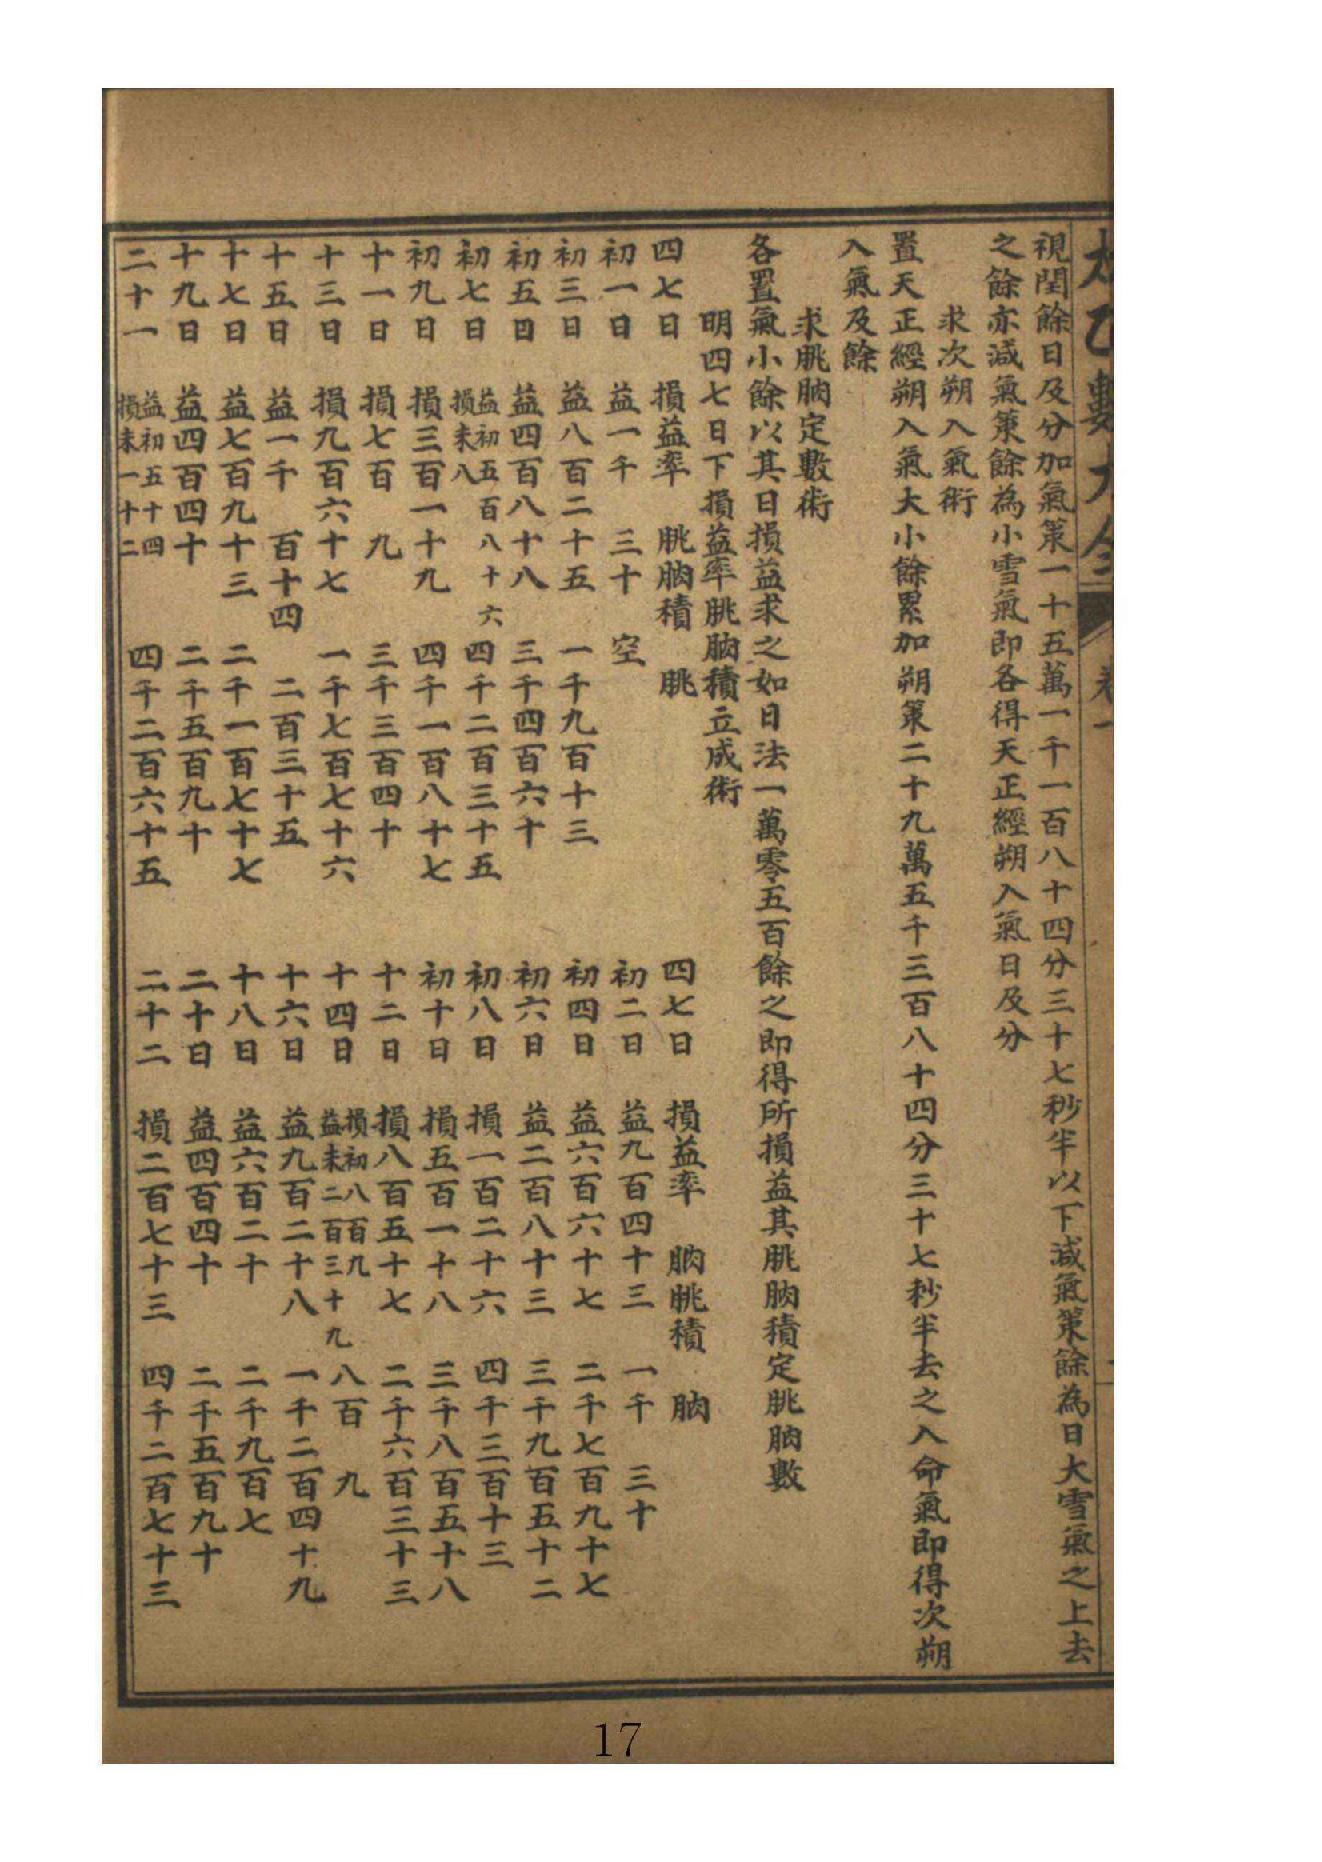 視閏餘日及分加氣策一十五萬一千一百八十四分三十七秒半以下減氣策餘為日大雪氣之上去
之餘亦減氣策餘為小雪氣即各得天正經朔入氣日及分
求次朔入氣術
置天正經朔入氣大小餘累加朔策二十九萬五千三百八十四分三十七秒半去之入命氣即得次朔
入氣及餘
求朓朒定數術
各置氣小餘以其日損益求之如日法一萬零五百餘之即得所損益其朓朒積定朓朒數
明四七日下損益率朓朒積立成術
四七日 損益率 朓朒積 朓 四七日 損益率 朒朓積 朒
初一日 益一千 三十 空 初二日 益九百四十三 一千 三十
初三日 益八百二十五 一千九百十三 初四日 益六百六十七 二千七百九十七
初五日 益四百八十八 三千四百六十 初六日 益二百八十三 三千九百五十二
初七日 益初五百八十六 損末八 四千二百三十五 初八日 損一百二十六 四千三百十三
初九日 損三百一十九 四千一百八十七 初十日 損五百一十八 三千八百五十八
十一日 損七百 九 三千三百四十 十二日 損八百五十七 二千六百三十三
十三日 損九百六十七 一千七百七十六 十四日 損初八百九 益末二百三十九 八百 九
十五日 益一千 百十四 二百三十五 十六日 益九百二十八 一千二百四十九
十七日 益七百九十三 二千一百七十七 十八日 益六百二十 二千九百七
十九日 益四百四十 二千五百九十 二十日 益四百四十 二千五百九十
二十一 益初五十四 損末一十二 四千二百六十五 二十二 損二百七十三 四千二百七十三
17